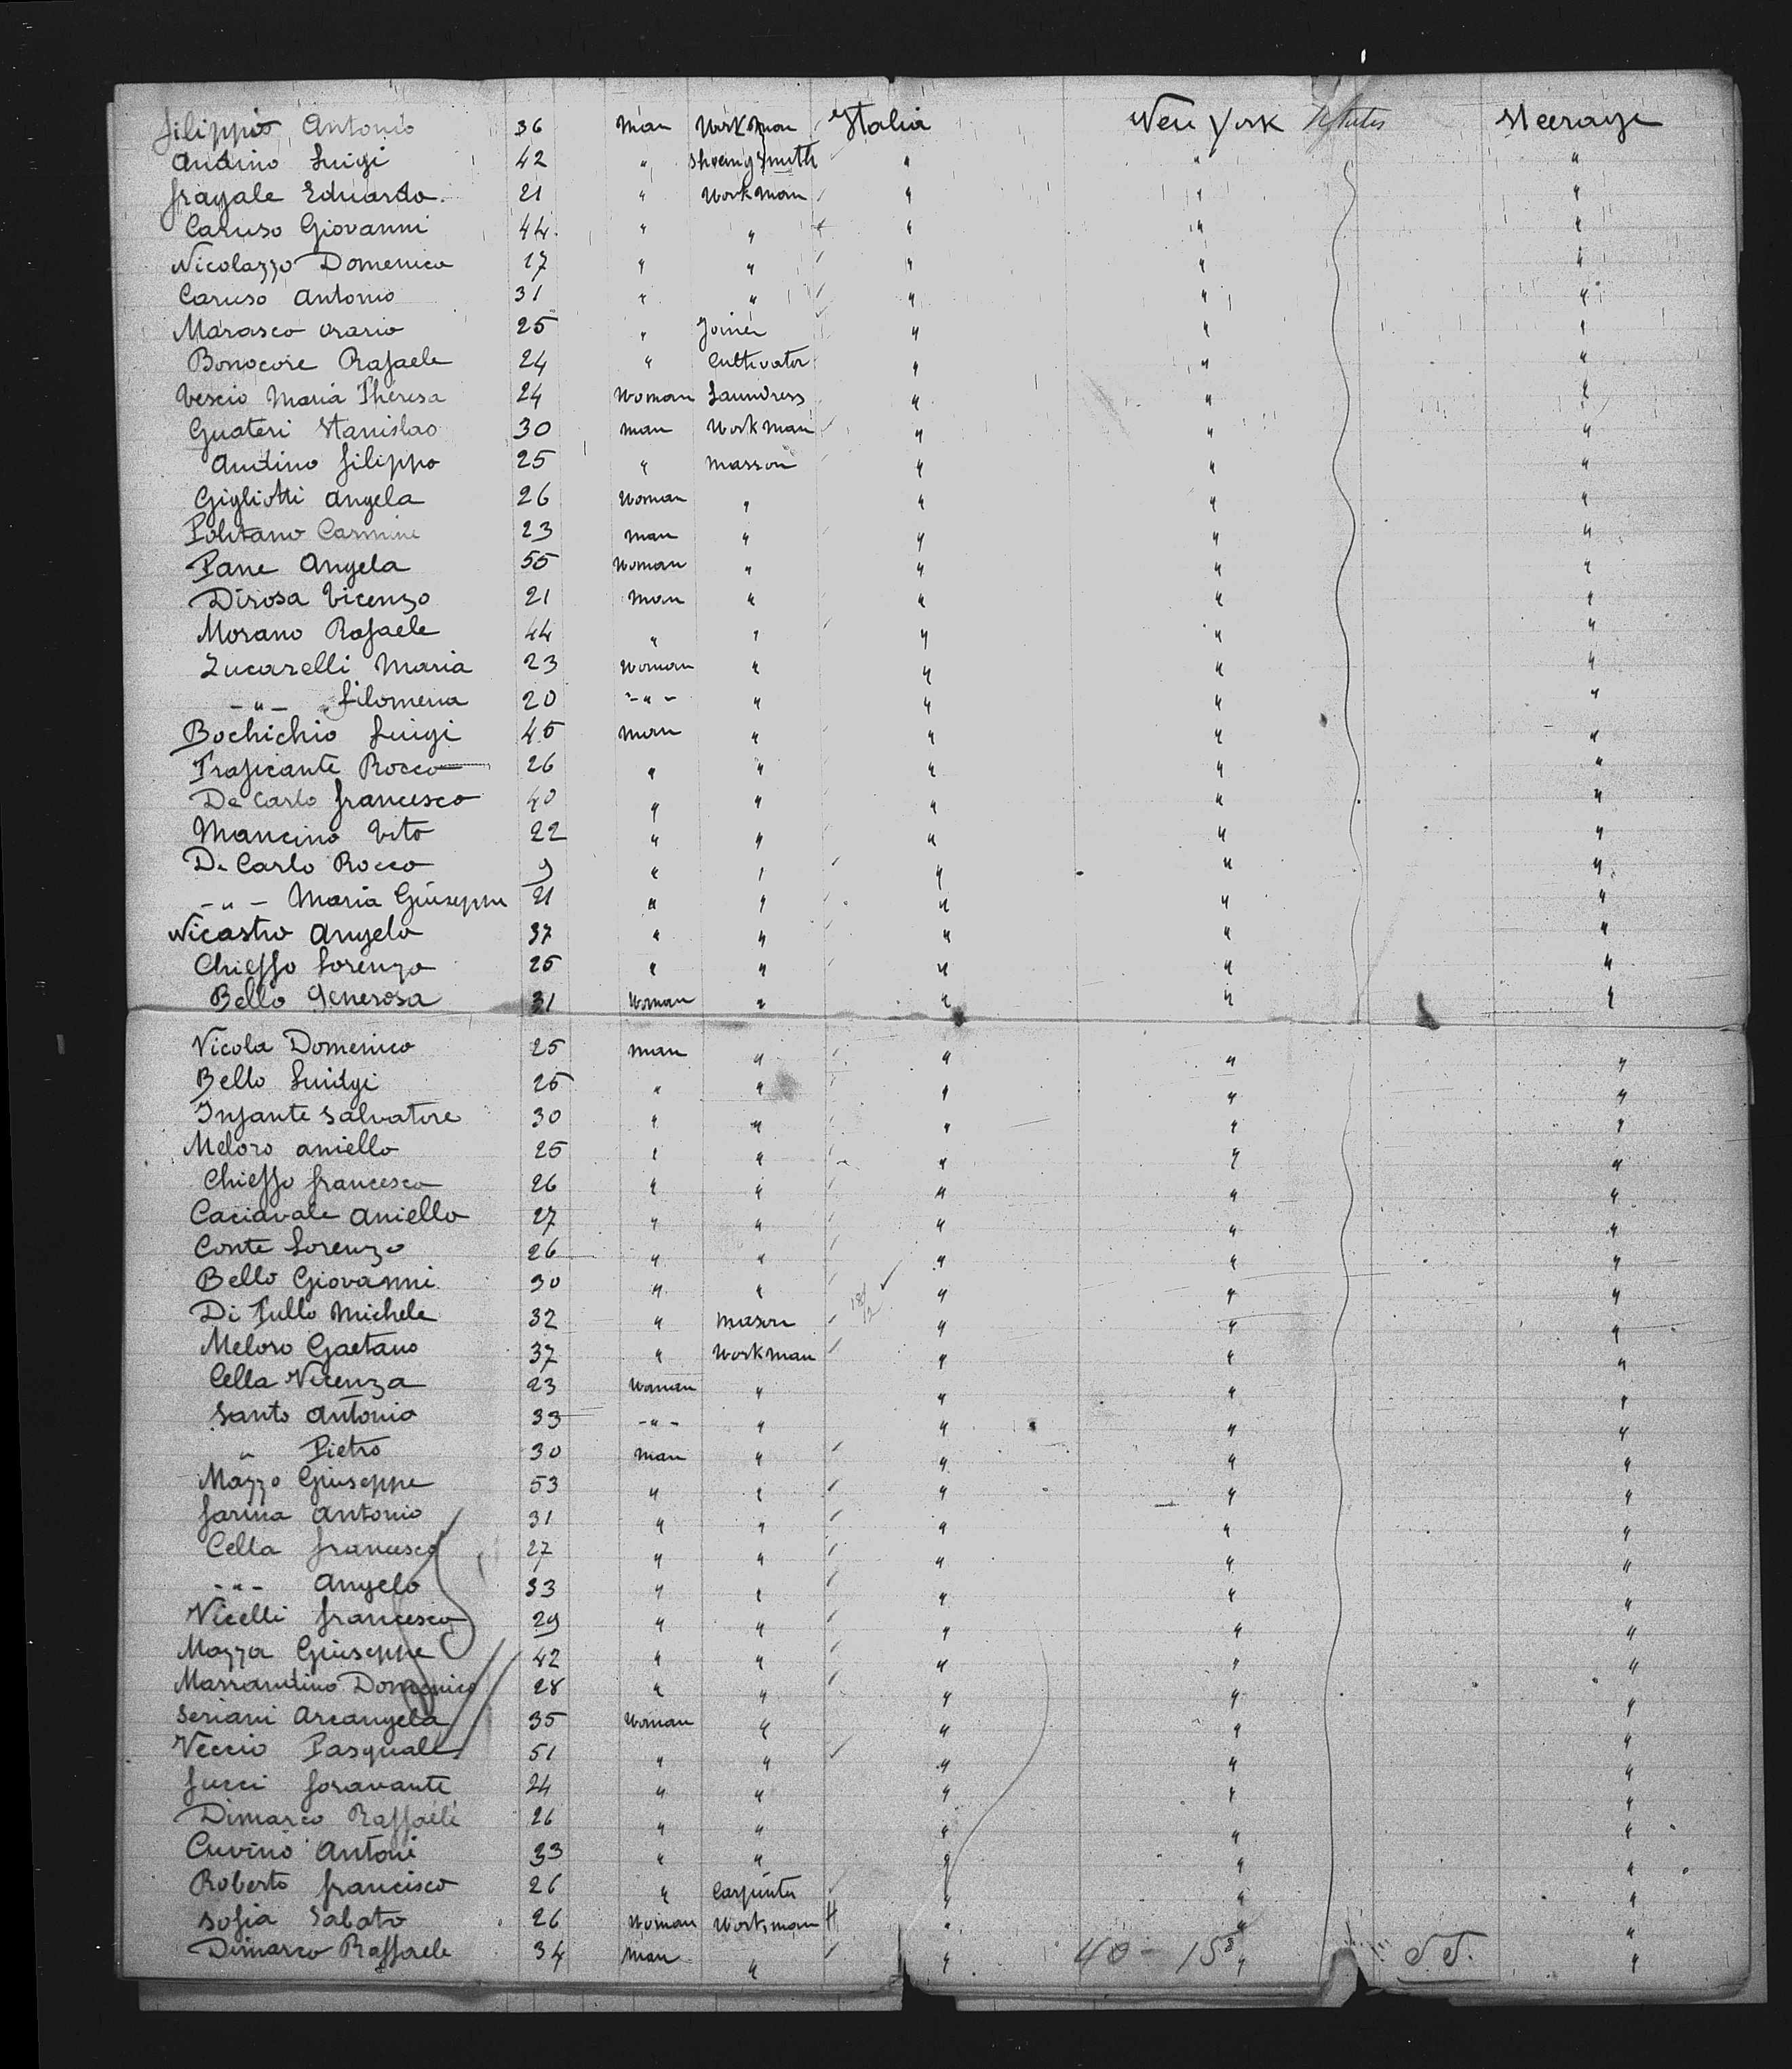 filippis Antonio 36 man Workman Italia New York Steerage
Andino Luigi 42 " Shoeing Smith " " "
fragale Eduardo 21 " Workman " " "
Caruso Giovanni 44 " " " " "
Nicolazzo Domenico 17 " " " " "
Caruso Antonio 31 " " " " "
Marasco Orario 25 " Joiner " " "
Bonocore Rafaele 24 " Cultivator " " "
Vescio Maria Theresa 24 Woman Laundress " " "
Guateri Stanislao 30 man Workman " " "
Andino filippo 25 " Masson " " "
Gigliotti Angela 26 Woman " " " "
Politano Carmine 23 man " " " "
Pane Angela 55 Woman " " " "
Dirosa Vicenzo 21 Man " " " "
Morano Rafaele 44 " " " " "
Lucarelli Maria 23 Woman " " " "
-"- filomena 20 -"- " " " "
Bochichio Luigi 45 Man " " " "
Traficante Rocco 26 " " " " "
De Carlo francesco 40 " " " " "
Mancino Vito 22 " " " " "
De Carlo Rocco 9 " " " " "
-"- Maria Giuseppe 21 " " " " "
Nicastro Angelo 37 " " " " "
Chieffo Lorenzo 25 " " " " "
Bello Generosa 31 Woman " " " "
Nicola Domenico 25 Man " " " "
Bello Luidgi 25 " " " " "
Infante Salvatore 30 " " " " "
Meloro aniello 25 " " " " "
Chieffo francesco 26 " " " " "
Caciavale Aniello 27 " " " " "
Conte Lorenzo 26 " " " " "
Bello Giovanni 30 " " " " "
Di Tullo Michele 32 " Mason " " "
Meloro Gaetano 37 " Workman " " "
Cella Vicenza 23 Woman " " " "
Santo Antonia 33 -"- " " " "
" Pietro 30 Man " " " "
Mazzo Giuseppe 53 " " " " "
farina Antonio 31 " " " " "
Cella francesco 27 " " " " "
-"- Angelo 33 " " " " "
Nicelli francesco 29 " " " " "
Mazza Giuseppe 42 " " " " "
Massandino Domenico 28 " " " " "
Seriani Arcangela 35 Woman " " " "
Veccio Pasquale 51 " " " " "
fucci foravante 24 " " " " "
Dimarco Raffaele 26 " " " " "
Cuvino Antoni 33 " " " " "
Roberto francisco 26 " Carpinter " " "
Sofia Sabato 26 Woman Workman " " "
Dimarco Raffaele 34 Man " " 40 - 15 " "